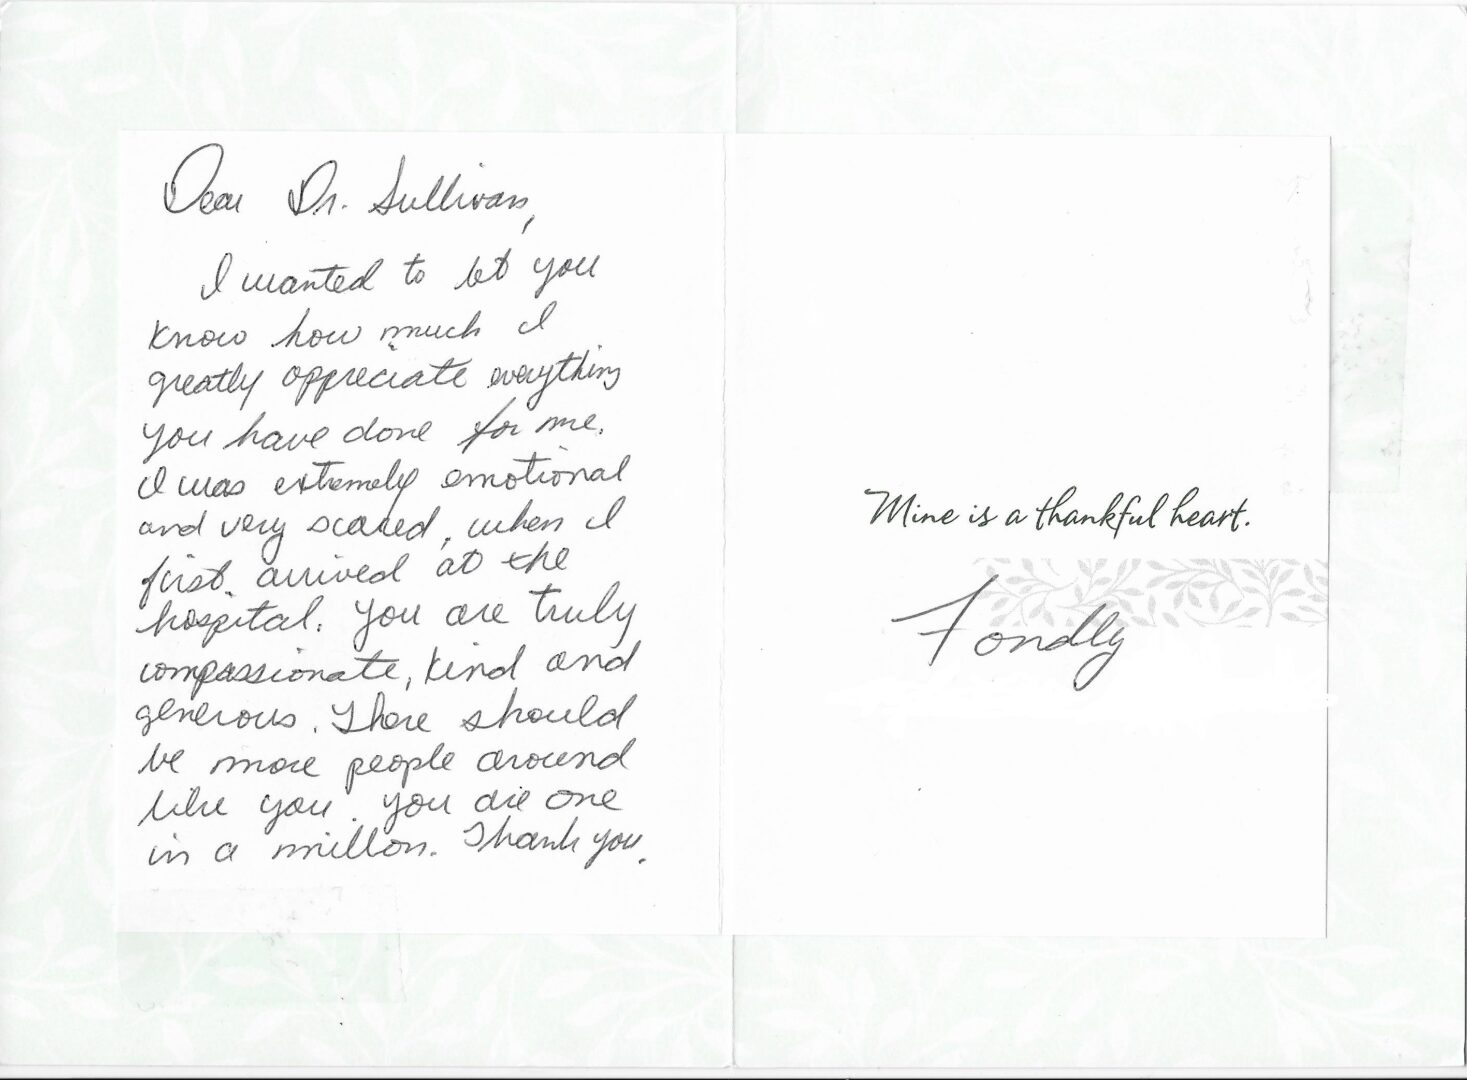 Dear Dr. Sullivan,
I wanted to let you
know how much I
greatly appreciate everything
you have done for me.
I was extremely emotional
and very scared, when I
first arrived at the
hospital. You are truly
compassionate, kind and
generous. There should
be more people around
like you. You are one
in a million. Thank you.
Mine is a thankful heart.
Fondly